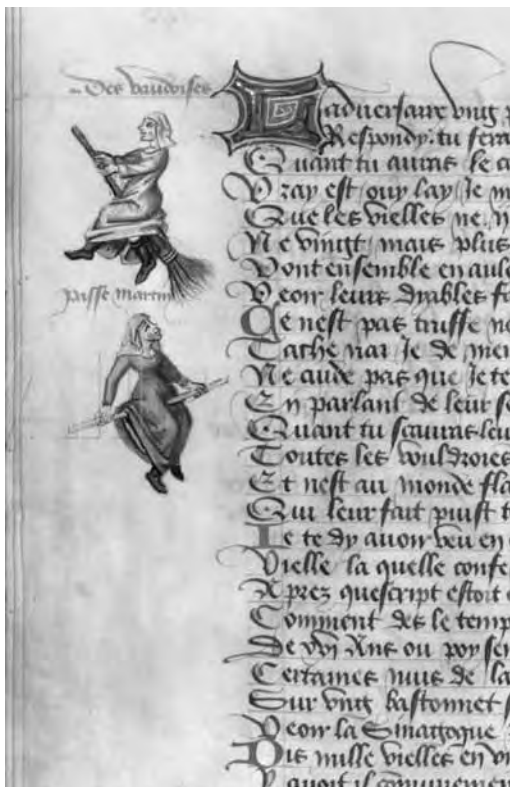 Des vaudoises
Passe martin
Ladversaire vng
Respondy. tu fera
Quant tu auras le
Vray est ouy lay Je
Que les vielles ne
Ne vingt mais plus
Vont ensemble en
Veoir leurs dyables
Ce nest pas truffe
Tache nai Je de
Ne cuide pas que Je te
En parlant de leur
Quant tu scauras leu
Toutes les vouldroies
Et nest au monde fla
Qui leur fait puist
Je te dy auoir veu en
Vielle la quelle confe
Aprez quescript estoit
Comment des le temp
De xvi Ans ou poy
Certaines nuis de la
Sur vng bastonnet
Veoir la Sinagogue
Dis mille vielles en
Y auoit il